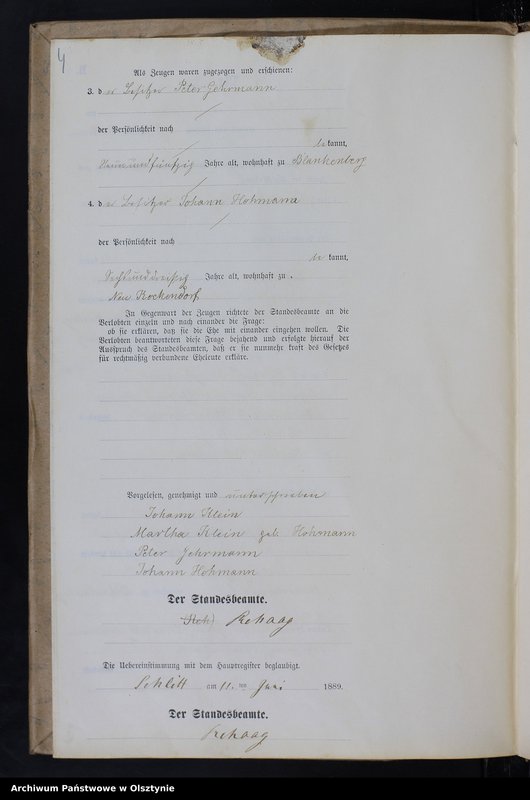 4
Als Zeugen waren zugezogen und erschienen:
3. der Besitzer Peter Gehrmann
der Persönlichkeit nach
bekannt,
Neunundfünfzig Jahre alt, wohnhaft zu Blankenberg
4. der Besitzer Johann Hohmann
der Persönlichkeit nach
bekannt,
Sechsunddreißig Jahre alt, wohnhaft zu .
Neu Kockendorf
In Gegenwart der Zeugen richtete der Standesbeamte an die
Verlobten einzeln und nach einander die Frage:
ob sie erklären, daß sie die Ehe mit einander eingehen wollen. Die
Verlobten beantworteten diese Frage bejahend und erfolgte hierauf der
Ausspruch des Standesbeamten, daß er sie nunmehr kraft des Gesetzes
für rechtmäßig verbundene Eheleute erkläre.
Vorgelesen, genehmigt und unterschrieben
Johann Klein
Martha Klein geb. Hohmann
Peter Gehrmann
Johann Hohmann
Der Standesbeamte.
Rehaag
Die Uebereinstimmung mit dem Hauptregister beglaubigt.
Schlitt am 11. ten Juni 1889.
Der Standesbeamte.
Rehaag
Archiwum Państwowe w Olsztynie